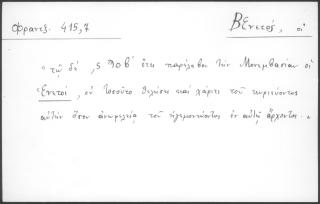 Φραντζ. 415,7
Βένετοί, οἱ
"τῷ δὲ ,ςϡοβ' ἔτει παρέλαβον τὴν Μονεμβασίαν οἱ
Ἐνετοί, οὐ τοσοῦτο θελήσει καὶ χάριτι τοῦ κυριεύοντος
αὐτὴν ὅσον ἀνωφελείᾳ τοῦ ἡγεμονεύοντος ἐν αὐτῇ ἄρχοντος."